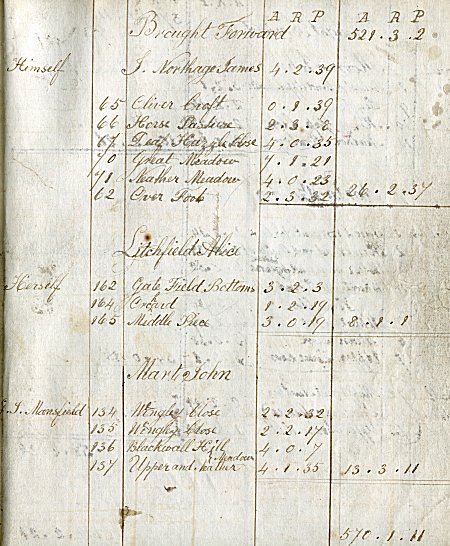 A R P A R P
Brought Forward 521.3.2
Himself J. Northage James 4.2.39
65 Cliver Croft 0.1.39
66 Horse Pasture 2.3.8
67 Close 4.0.35
70 Great Meadow 7.1.21
71 Neather Meadow 4.0.23
62 Over Foot 2.3.32 26.2.37
Litchfield Alice
Herself 162 Gate Field Bottoms 3.2.3
164 Orchd 1.2.19
165 Middle Piece 3.0.19 8.1.1
Mart John
J. Mansfield 134 Wingley Close 2.2.32
135 Wingley Close 2.2.17
136 Blackwall Hill 4.0.7
Meadow
137 Upper and Nather 4.1.35 13.3.11
570.1.11